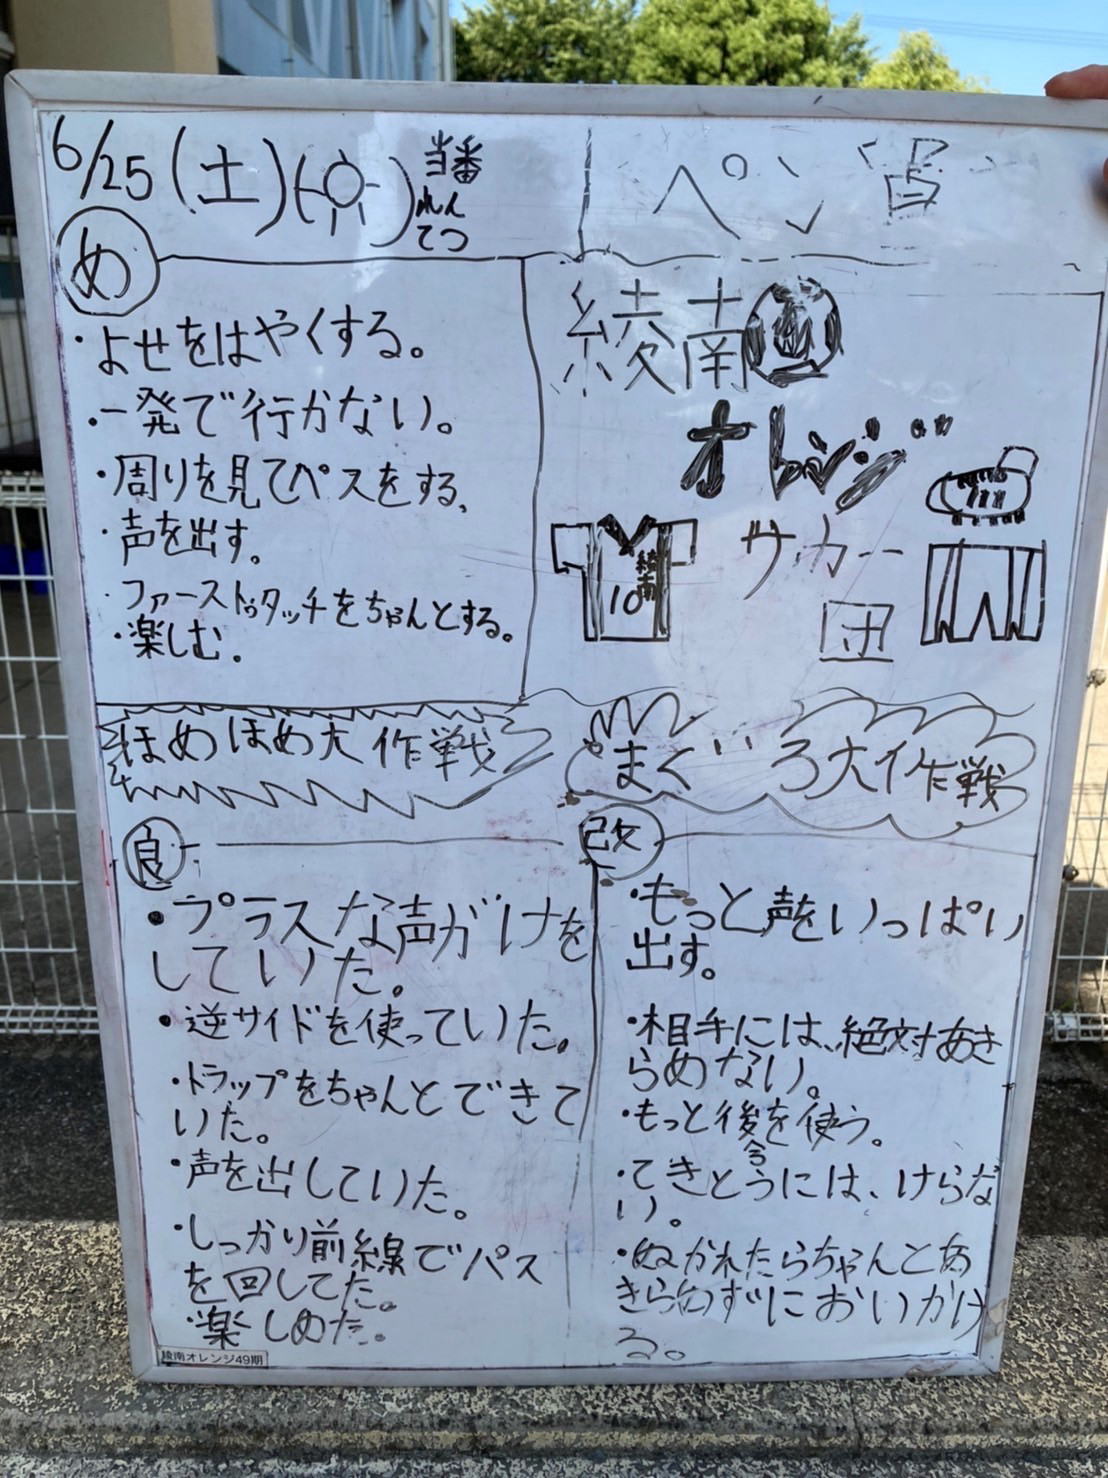 6/25(土)( )当番
れん
てつ
め
・よせをはやくする。
・一発で行かない。
・周りを見てパスをする。
・声を出す。
・ファーストタッチをちゃんとする。
・楽しむ.
綾南
オレンジ
サカー
団
綾南
10
ほめほめ大作戦
まぐろ大作戦
良
・プラスな声がけを
していた。
・逆サイドを使っていた。
・トラップをちゃんとできて
いた。
・声を出していた。
・しっかり前線でパス
を回してた。
・楽しめた。
改
・もっと声をいっぱい
出す。
・相手には、絶対あき
らめない。
・もっと後を使う。
・てきとうには、けらな
い。
・ぬかれたらちゃんとあ
きらめずにおいかけ
る。
綾南オレンジ49期